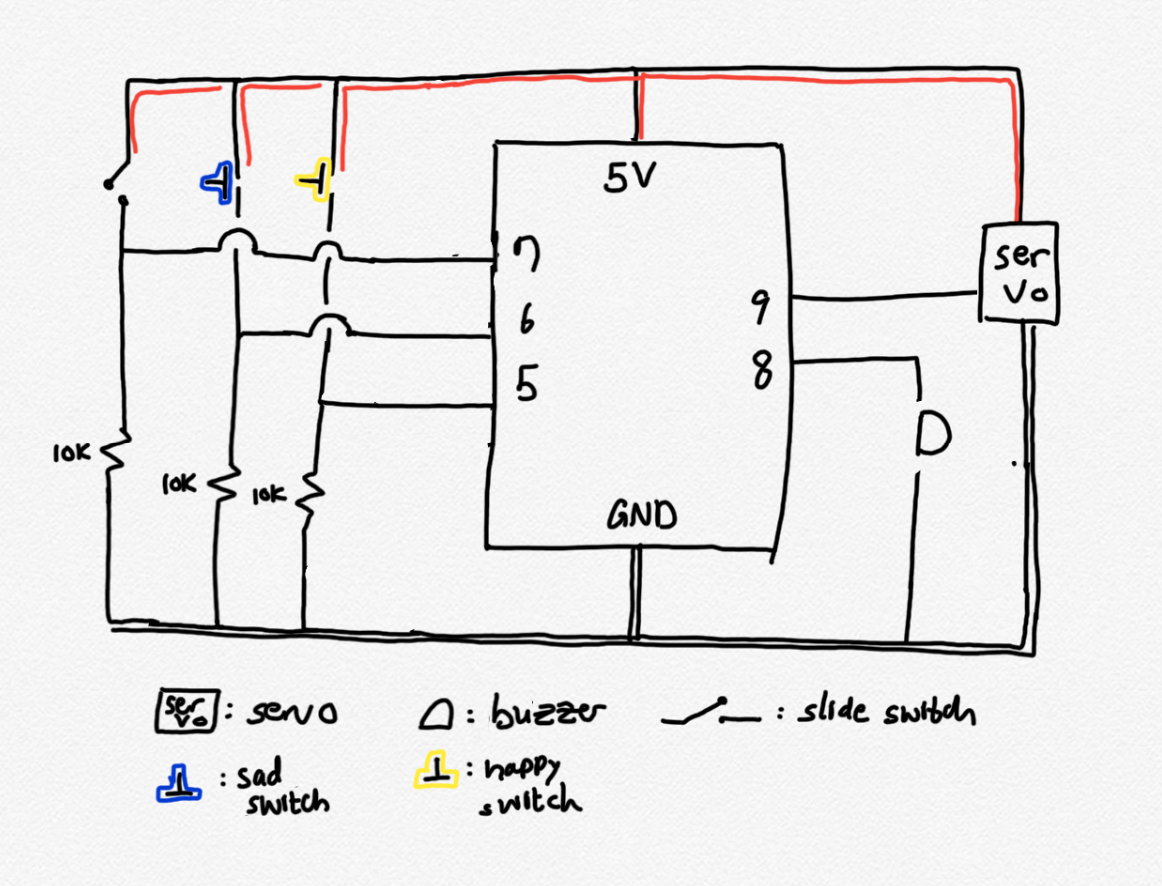 5V
7
6
5
9
8
GND
ser
vo
10K
10K
10K
ser
vo
: servo
: buzzer
: slide switch
: sad
switch
: happy
switch